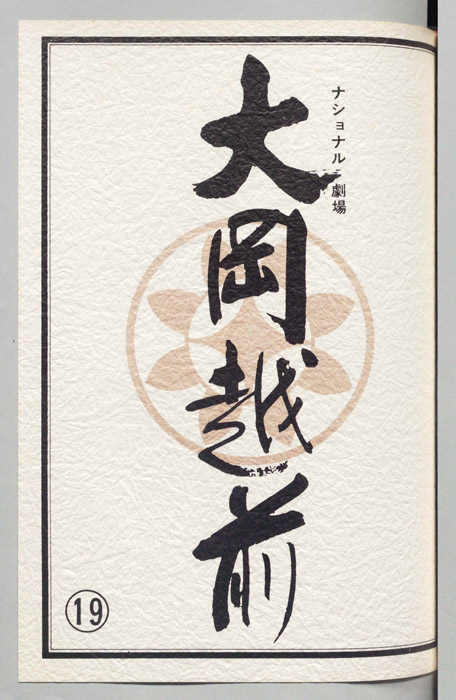 ナショナル劇場
大岡越前
⑲